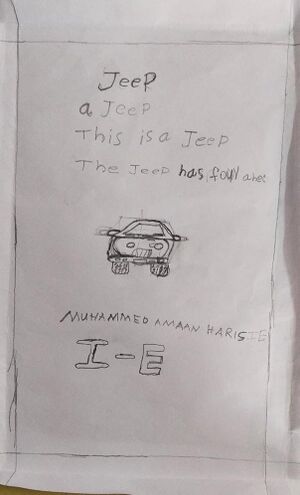 JeeP
a JeeP
This is a JeeP
The JeeP has four
MUHAMMED AMAAN HARIS
I-E